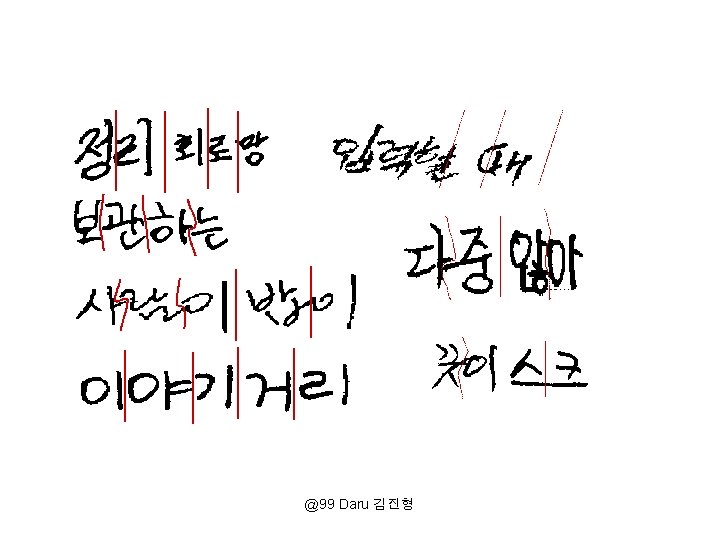 정리 회로망
입력할 때
보관하는
다중 않아
사람이 밤이
꽃이 스크
이야기거리
@99 Daru 김진형